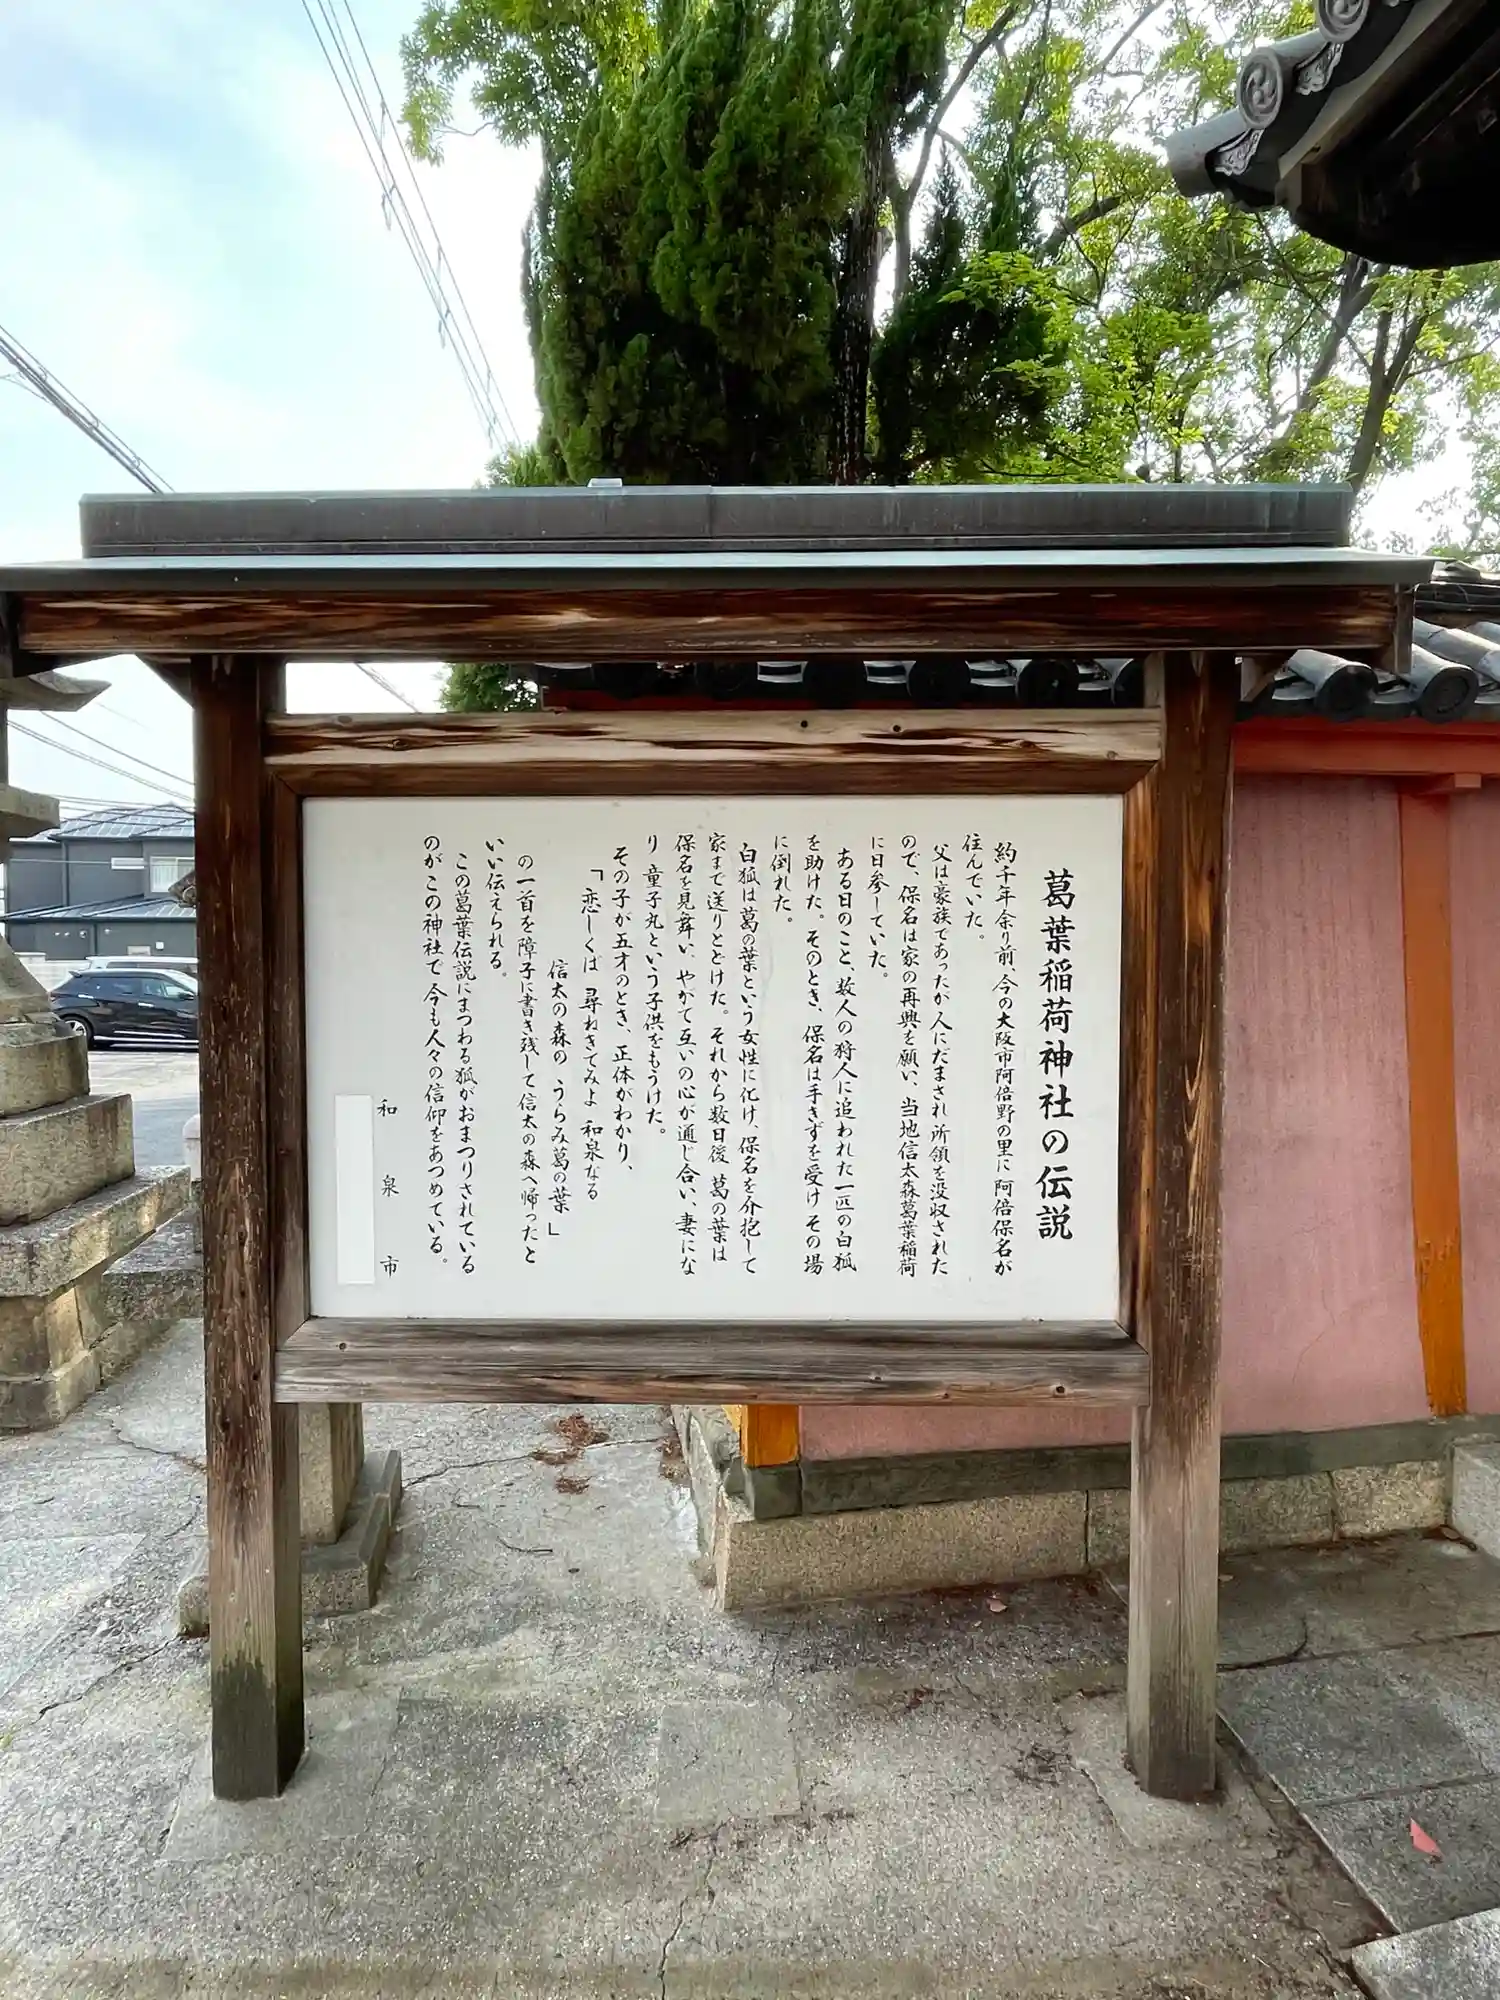 葛葉稲荷神社の伝説
約千年余り前、今の大阪市阿倍野の里に阿倍保名が
住んでいた。
父は豪族であったが人にだまされ所領を没収された
ので、保名は家の再興を願い、当地信太森葛葉稲荷
に日参していた。
ある日のこと、数人の狩人に追われた一匹の白狐
を助けた。そのとき、保名は手きずを受けその場
に倒れた。
白狐は葛の葉という女性に化け、保名を介抱して
家まで送りとどけた。それから数日後 葛の葉は
保名を見舞い、やがて互いの心が通じ合い、妻にな
り 童子丸という子供をもうけた。
その子が五才のとき、正体がわかり、
「恋しくは 尋ねきてみよ 和泉なる
信太の森の うらみ葛の葉」
の一首を障子に書き残して信太の森へ帰ったと
いい伝えられる。
この葛葉伝説にまつわる狐がおまつりされている
のがこの神社で今も人々の信仰をあつめている。
和泉市